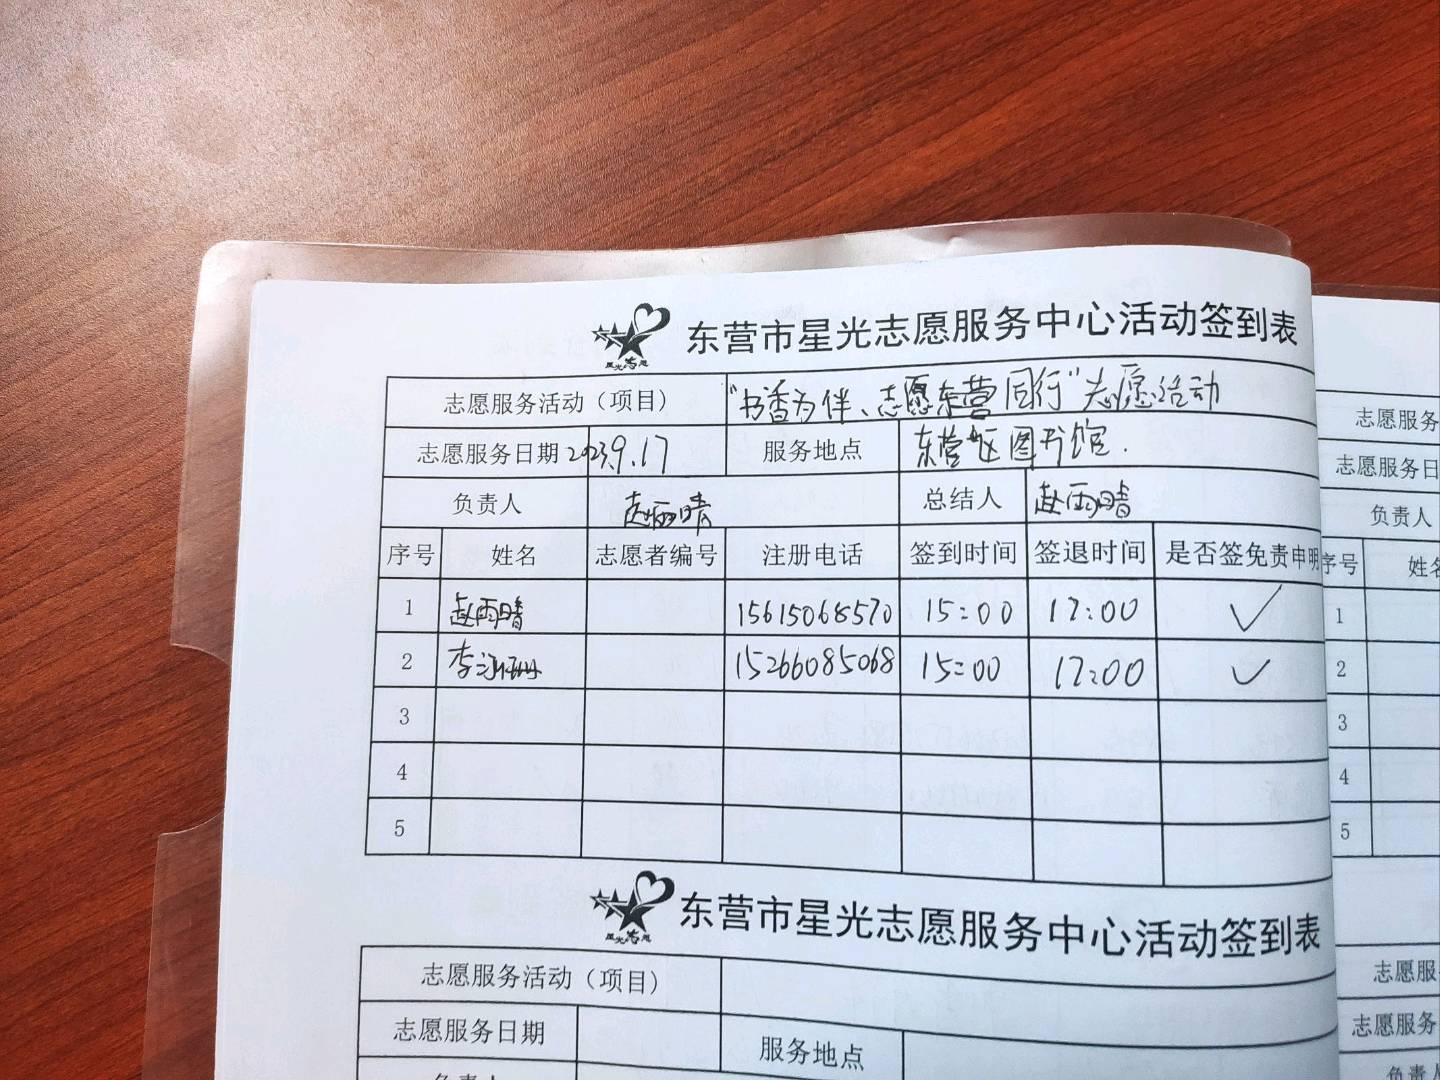 星光志愿
东营市星光志愿服务中心活动签到表
志愿服务活动（项目） “书香为伴、志愿东营同行”志愿活动
志愿服务日期 2023.9.17 服务地点 东营区图书馆.
负责人 赵雨晴 总结人 赵雨晴
序号 姓名 志愿者编号 注册电话 签到时间 签退时间 是否签免责申明
1 赵雨晴 15615068570 15:00 17:00 ✓
2 李 15266085068 15:00 17:00 ✓
3
4
5
星光志愿
东营市星光志愿服务中心活动签到表
志愿服务活动（项目）
志愿服务日期 服务地点
负责人
志愿服务
志愿服务日
负责人
序号 姓名
1
2
3
4
5
志愿服
志愿服务
负责人